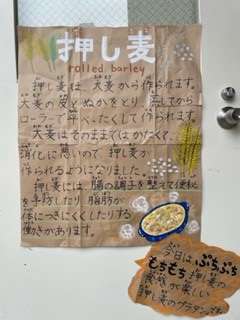 押し麦
rolled barley
押し麦は、大麦から作られます。
大麦の皮とぬかをとり、蒸してから
ローラーで平べったくして作られます。
大麦はそのままではかたくて、
消化に悪いので、押し麦が
作られるようになりました。
押し麦には、腸の調子を整えて便秘
を予防したり、脂肪が
体につきにくくしたりする
働きがあります。
今日は、ぷちぷち
もちもち押し麦の
食感が楽しい
押し麦のグラタンです